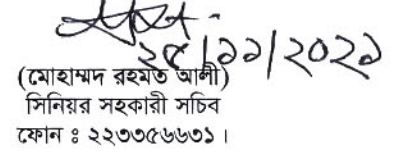 ২৫/১১/২০২১
(মোহাম্মদ রহমত আলী)
সিনিয়র সহকারী সচিব
ফোন ঃ ২২৩৩৫৬৬৩১।